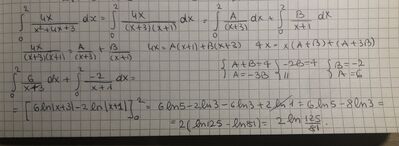 ∫₀² 4x/(x²+4x+3) dx = ∫₀² 4x/((x+3)(x+1)) dx = ∫₀² A/(x+3) dx + ∫₀² B/(x+1) dx
4x/((x+3)(x+1)) = A/(x+3) + B/(x+1) 4x = A(x+1)+B(x+3) 4x = x(A+B)+(A+3B)
{ A+B=4 A=-3B { -2B=4 // { B=-2 A=6
∫₀² 6/(x+3) dx + ∫₀² -2/(x+1) dx =
= [6ln|x+3| - 2ln|x+1|]₀² = 6ln5 - 2ln3 - 6ln3 + 2ln1 = 6ln5 - 8ln3 =
= 2(ln125 - ln81) = 2ln 125/81.